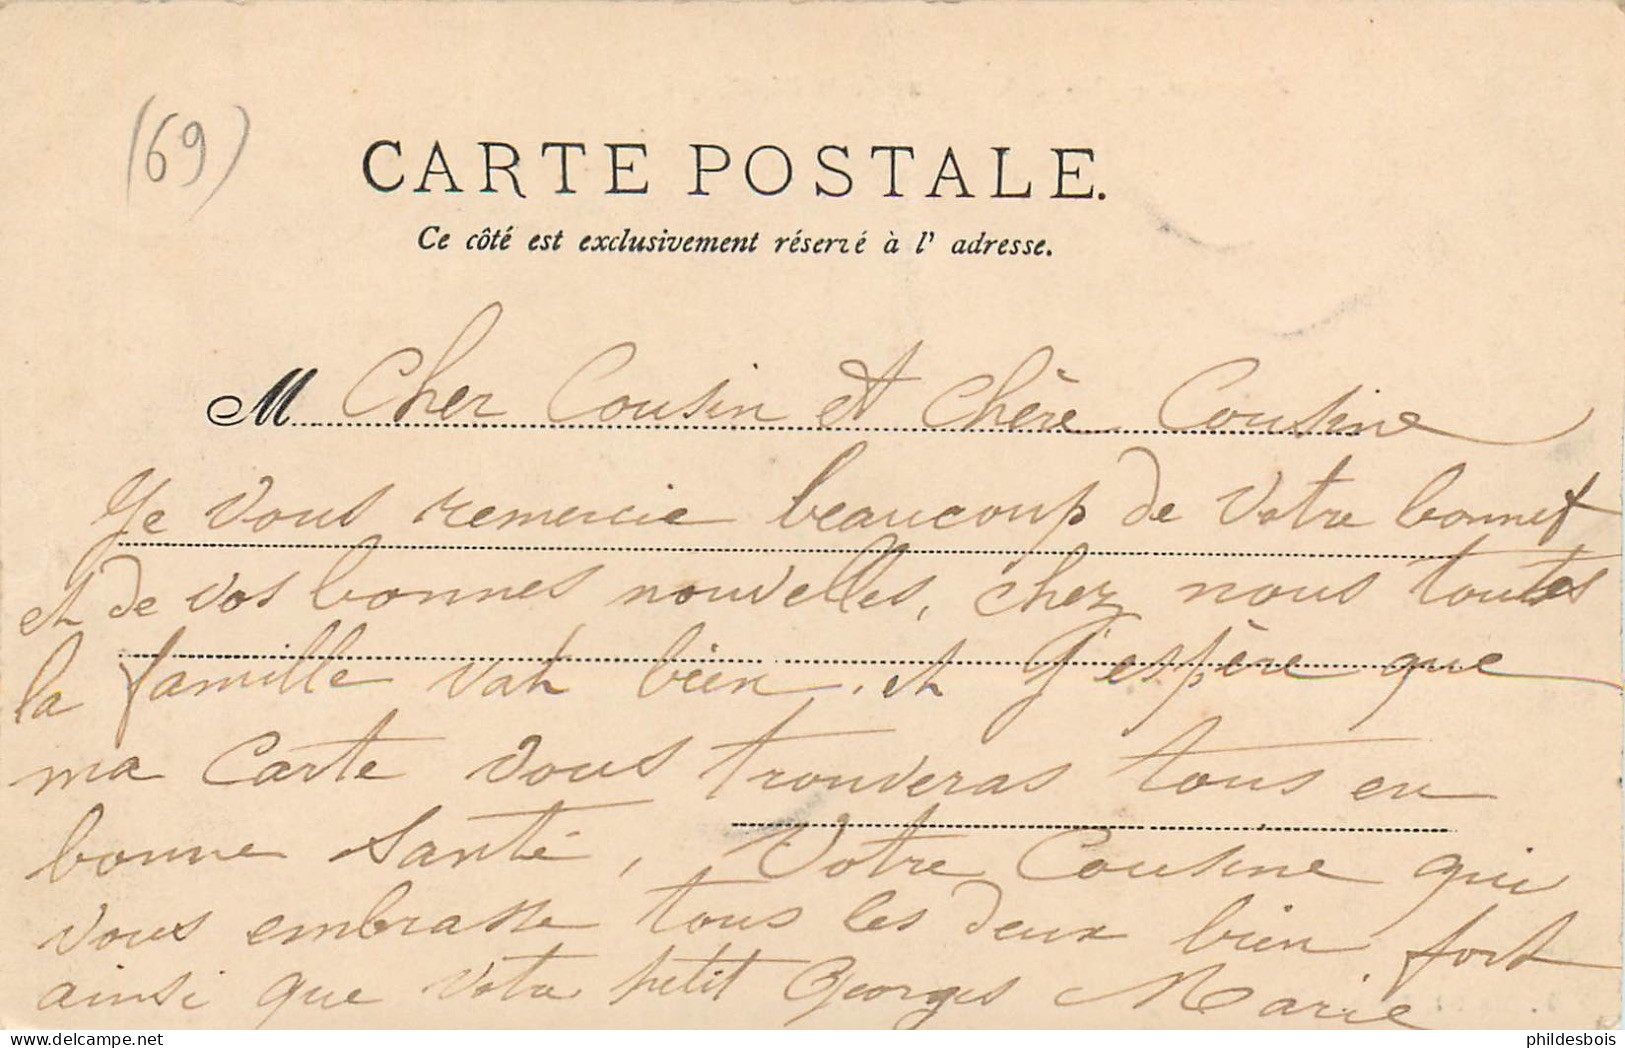 (69)
CARTE POSTALE.
Ce côté est exclusivement réservé à l' adresse.
M Cher Cousin et Chère Cousine
Je vous remercie beaucoup de votre bonnet
et de vos bonnes nouvelles, chez nous toutes
la famille vah bien, et J'espère que
ma Carte vous trouveras tous en
bonne Santé, Votre Cousine qui
vous embrasse tous les deux bien fort
ainsi que votre petit Georges Marie
delcampe.net
phildesbois